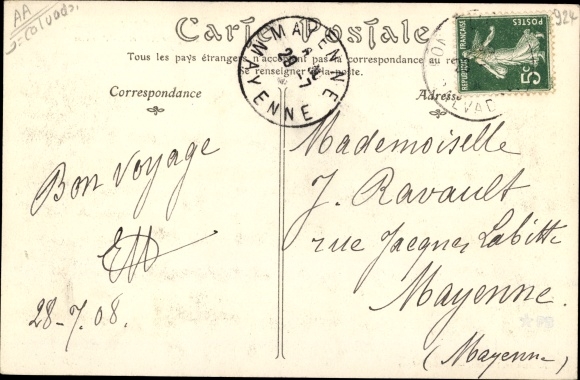 AA
J: Calvados.
924
Carte Postale
Tous les pays étrangers n'acceptent pas la correspondance au recto
Se renseigner à la poste.
Correspondance
Adresse
MAYENNE
MAYENNE
29
7
RÉPUBLIQUE FRANÇAISE
POSTES
5c
Bon Voyage
EM
28-7.08.
Mademoiselle
J. Ravault
rue Jacques Labitte
Mayenne.
(Mayenne)